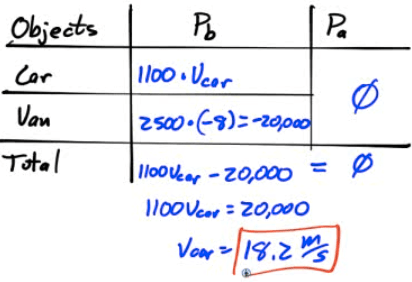 Objects P_b P_a
Car 1100 · V_car ∅
Van 2500 · (-8) = -20,000
Total 1100V_car - 20,000 = ∅
1100V_car = 20,000
V_car = 18.2 m/s